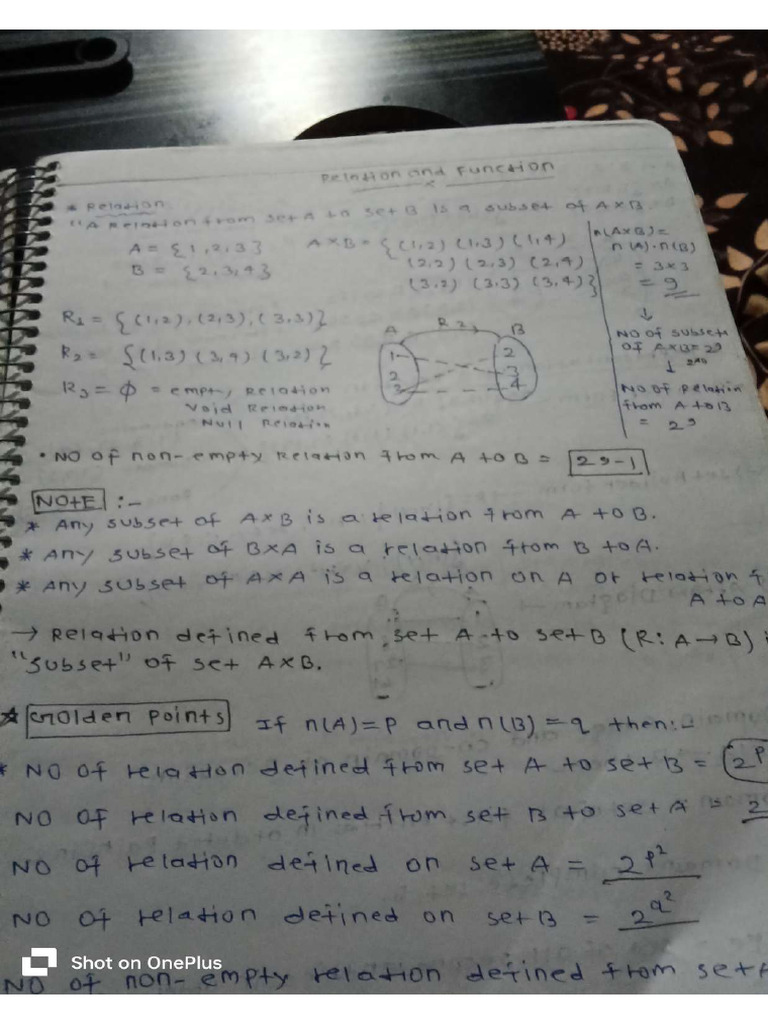 Relation and Function
* Relation
"A Relation from set A to set B is a subset of A×B
A = {1,2,3}
B = {2,3,4}
A×B = {(1,2) (1,3) (1,4)
(2,2) (2,3) (2,4)
(3,2) (3,3) (3,4)}
n(A×B) =
n(A)·n(B)
= 3×3
= 9
↓
NO of subset
of A×B = 2⁹
↓
NO of Relation
from A to B
= 2⁹
R₁ = {(1,2), (2,3), (3,3)}
R₂ = {(1,3) (3,4) (3,2)}
R₃ = ϕ = empty Relation
Void Relation
Null Relation
A R₂ B
1 2
2 3
3 4
• NO of non-empty Relation from A to B = 2⁹-1
NOTE :-
* Any subset of A×B is a relation from A to B.
* Any subset of B×A is a relation from B to A.
* Any subset of A×A is a relation on A or relation f
A to A
→ Relation defined from set A to set B (R: A→B) i
"subset" of set A×B.
* Golden Points If n(A)=P and n(B)=q then:-
* NO of relation defined from set A to set B = 2ᴾ
NO of relation defined from set B to set A = 2
NO of relation defined on set A = 2^P²
NO of relation defined on set B = 2^q²
NO of non-empty relation defined from set A
Shot on OnePlus